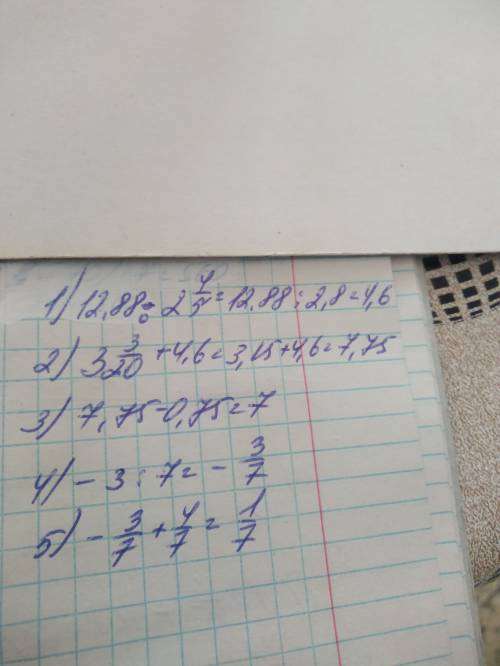 1) 12,88 : 2 4/5 = 12,88 : 2,8 = 4,6
2) 3 3/20 + 4,6 = 3,15 + 4,6 = 7,75
3) 7,75 - 0,75 = 7
4) - 3 : 7 = - 3/7
5) - 3/7 + 4/7 = 1/7